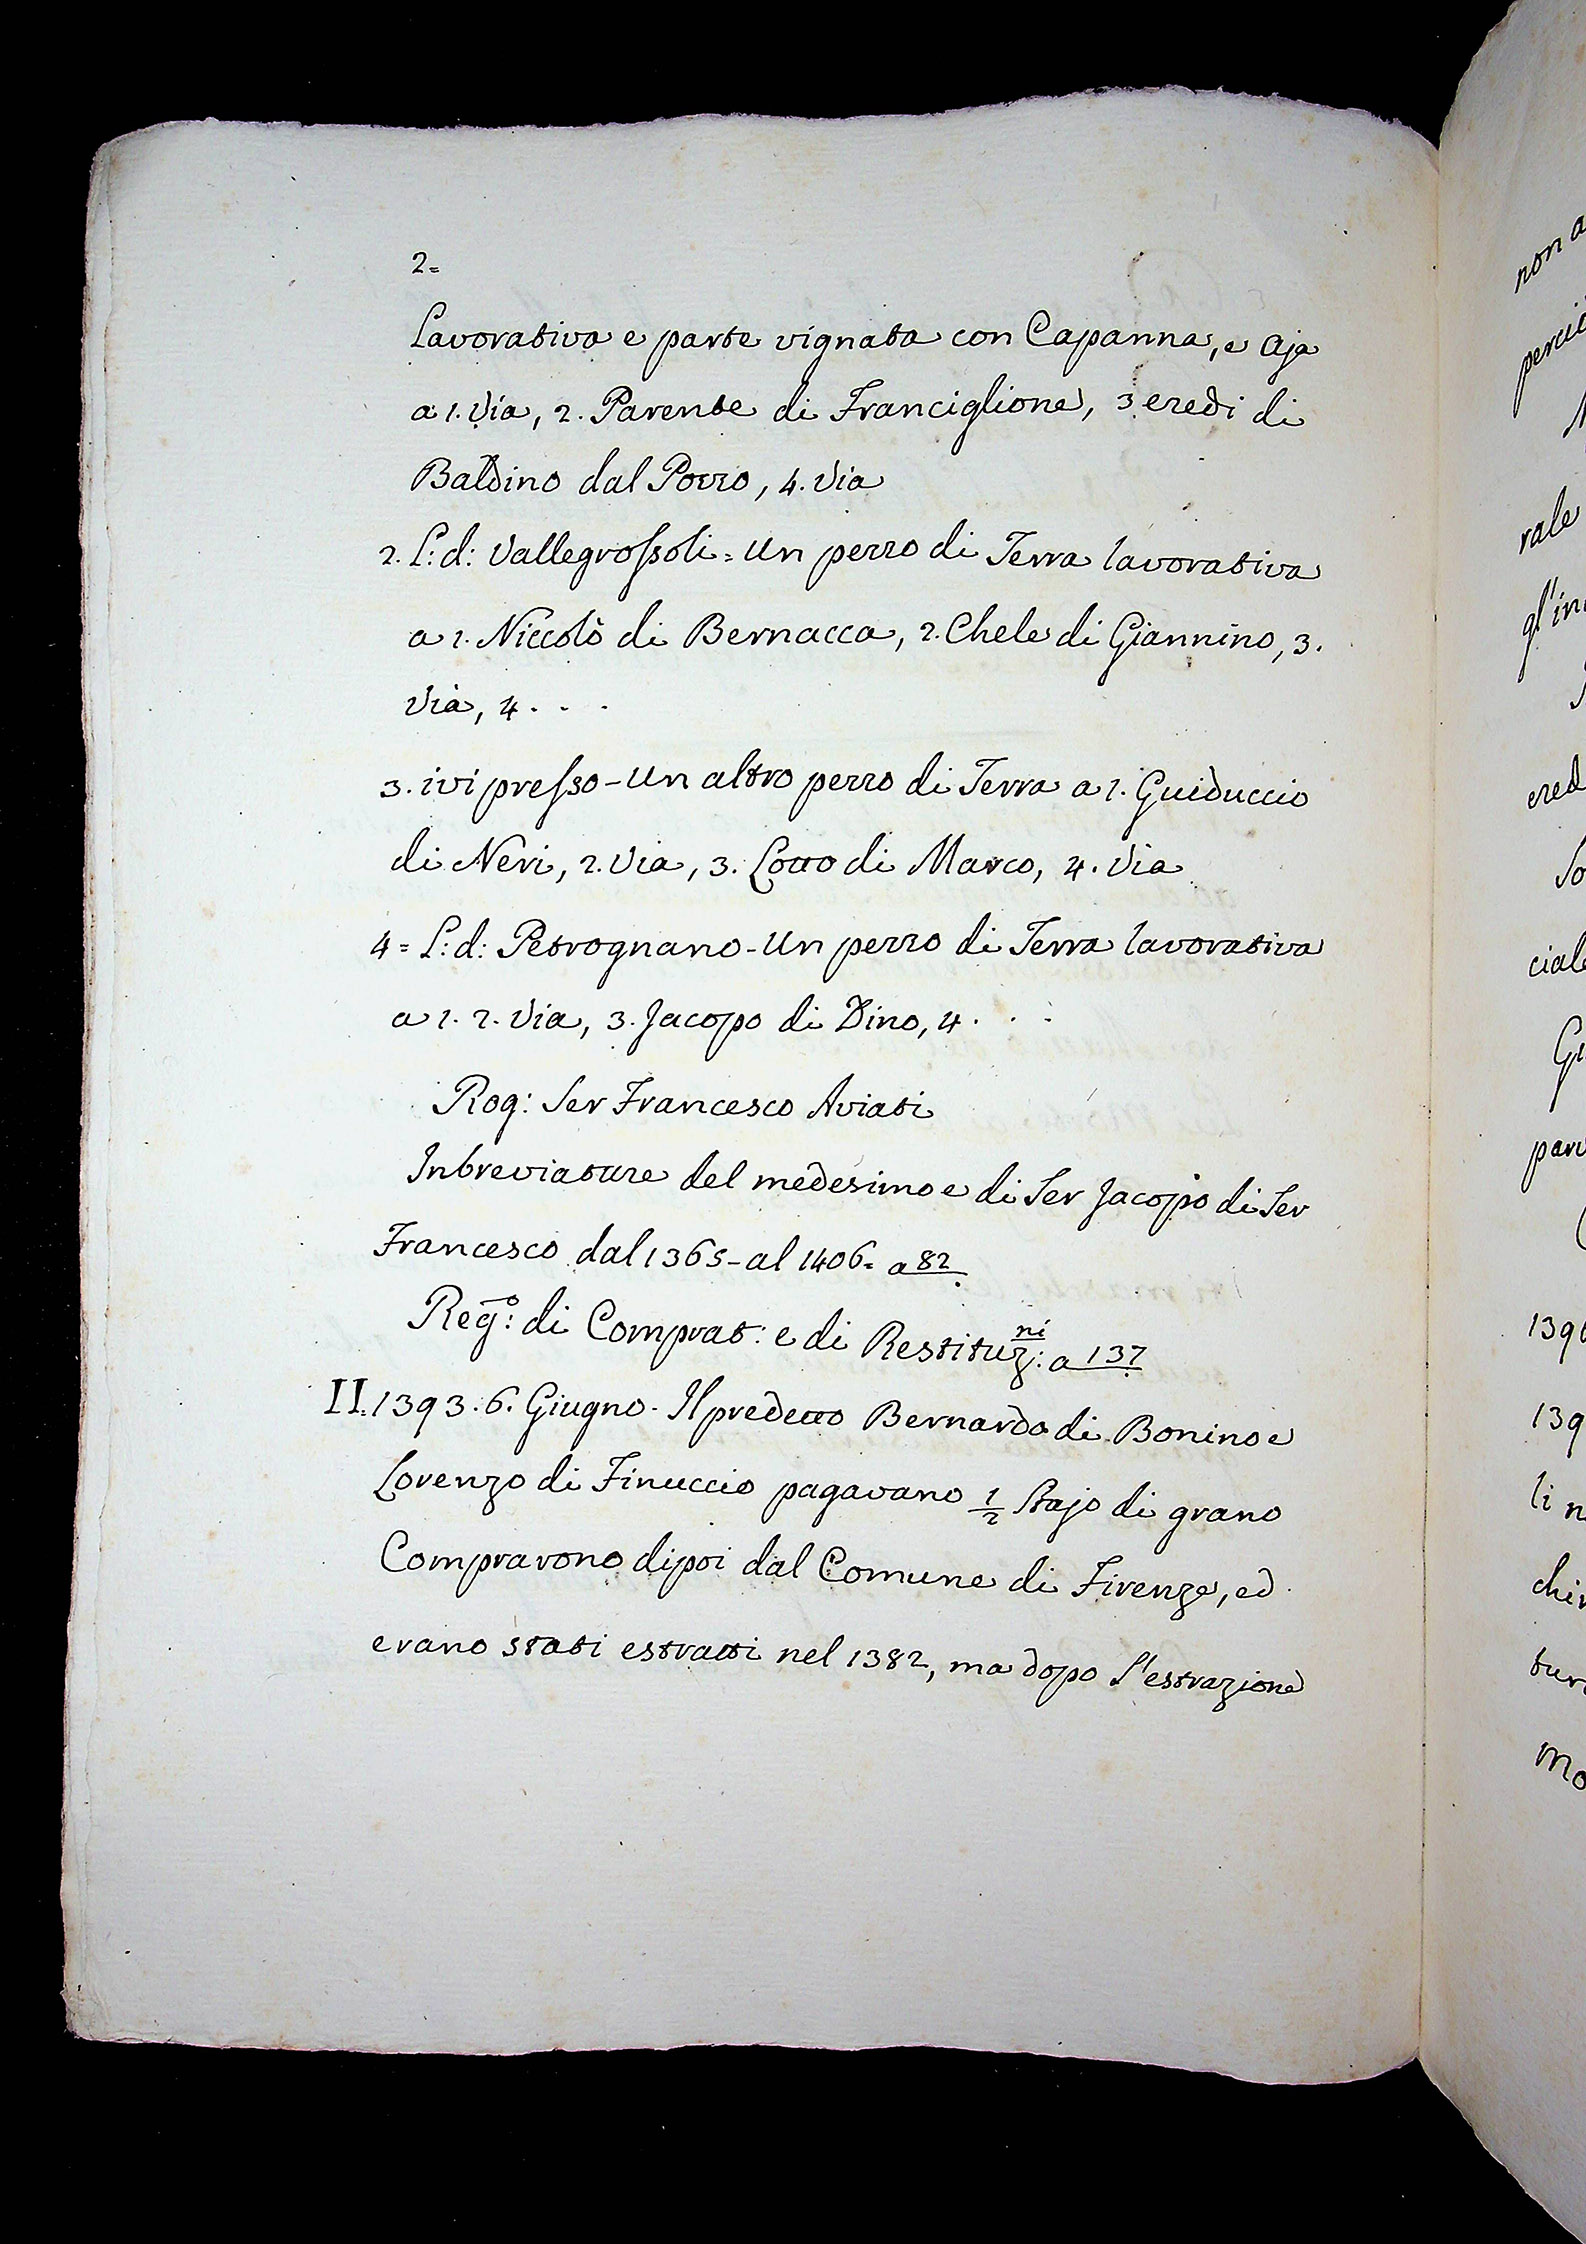 2=
Lavorativa e parte vignata con Capanna, e Aja
a 1. Via, 2. Parente di Franciglione, 3 eredi di
Baldino dal Pozzo, 4. Via
2. L: d: Vallegrossoli = Un pezzo di Terra lavorativa
a 1. Niccolò di Bernacca, 2. Chele di Giannino, 3.
Via, 4 . . .
3. ivi presso - Un altro pezzo di Terra a 1. Guiduccio
di Neri, 2. Via, 3. Lotto di Marco, 4. Via
4 = L: d: Petrognano - Un pezzo di Terra lavorativa
a 1. 2. Via, 3. Jacopo di Dino, 4 . . .
Rog: Ser Francesco Aviati
Inbreviature del medesimo e di Ser Jacopo di Ser
Francesco dal 1365 - al 1406 = a 82
Reg.º: di Comprat: e di Restituz:ni a 137
II. 1393. 6. Giugno. Il predetto Bernardo di Bonino e
Lorenzo di Finuccio pagavano 1/2 Stajo di grano
Comprarono dipoi dal Comune di Firenze, ed
erano stati estratti nel 1382, ma dopo l'estrazione
non a
rale
gl'in
ered
So
ciale
Gu
139
139
li n
chi
tur
Mo